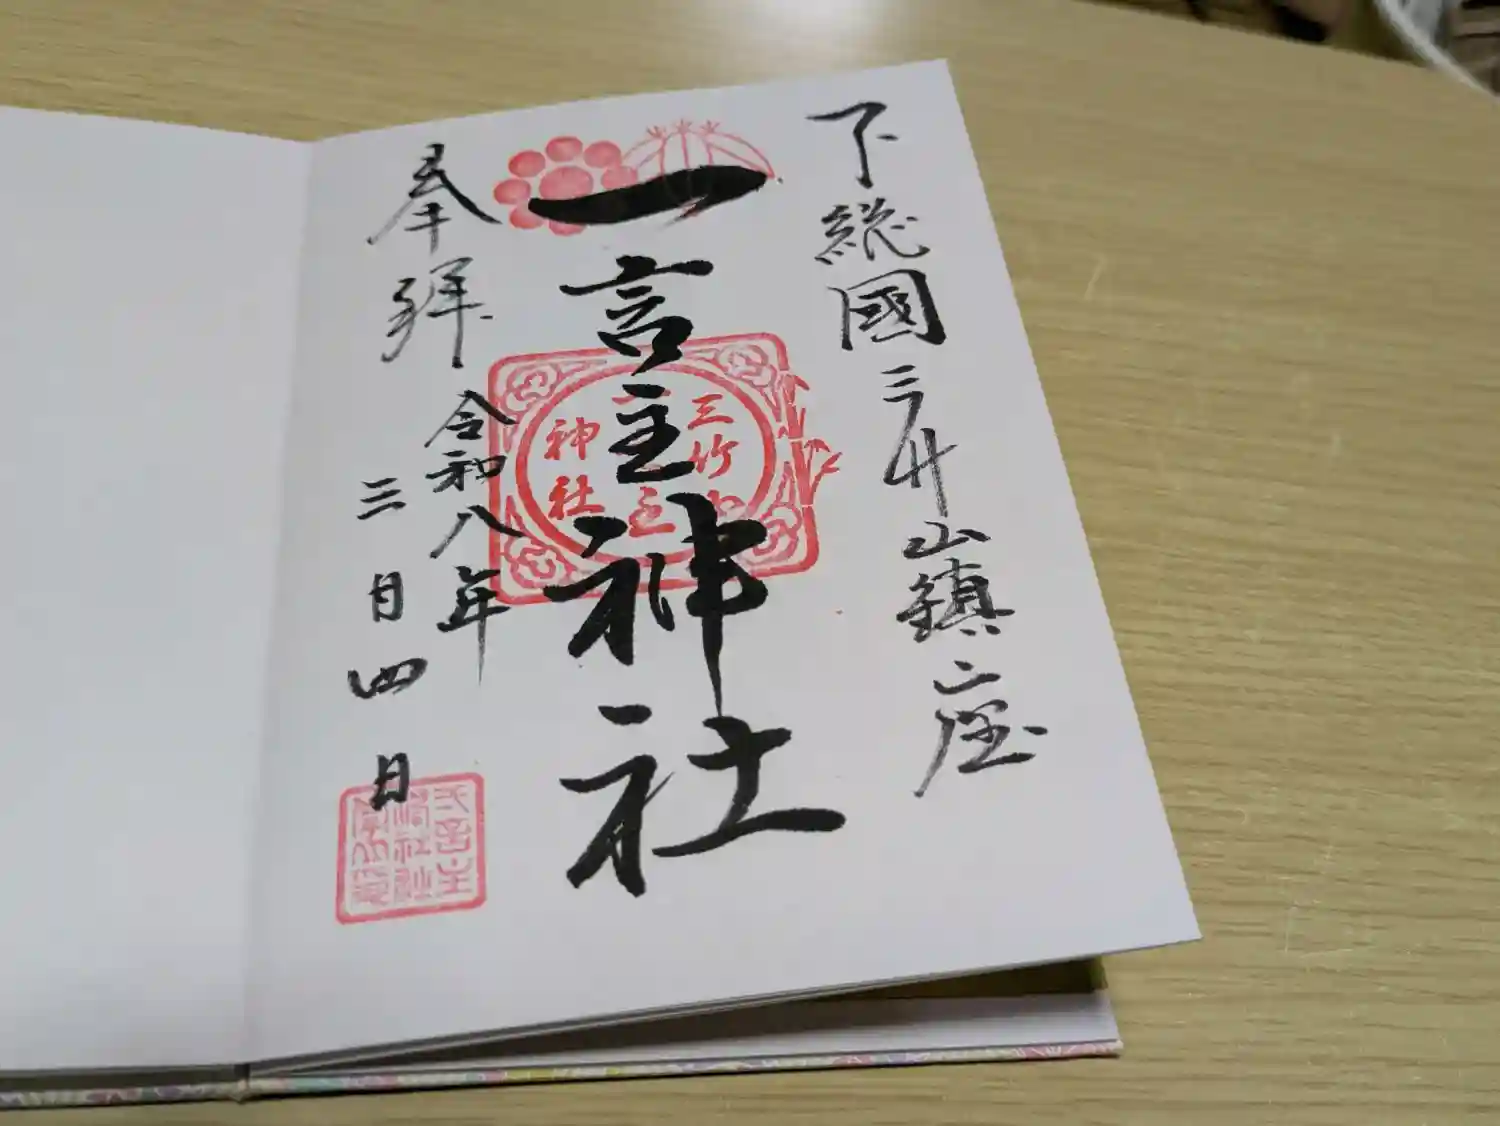 下総國三竹山鎮座
一言主神社
三竹山
一言主
神社
奉拝
令和八年
三月四日